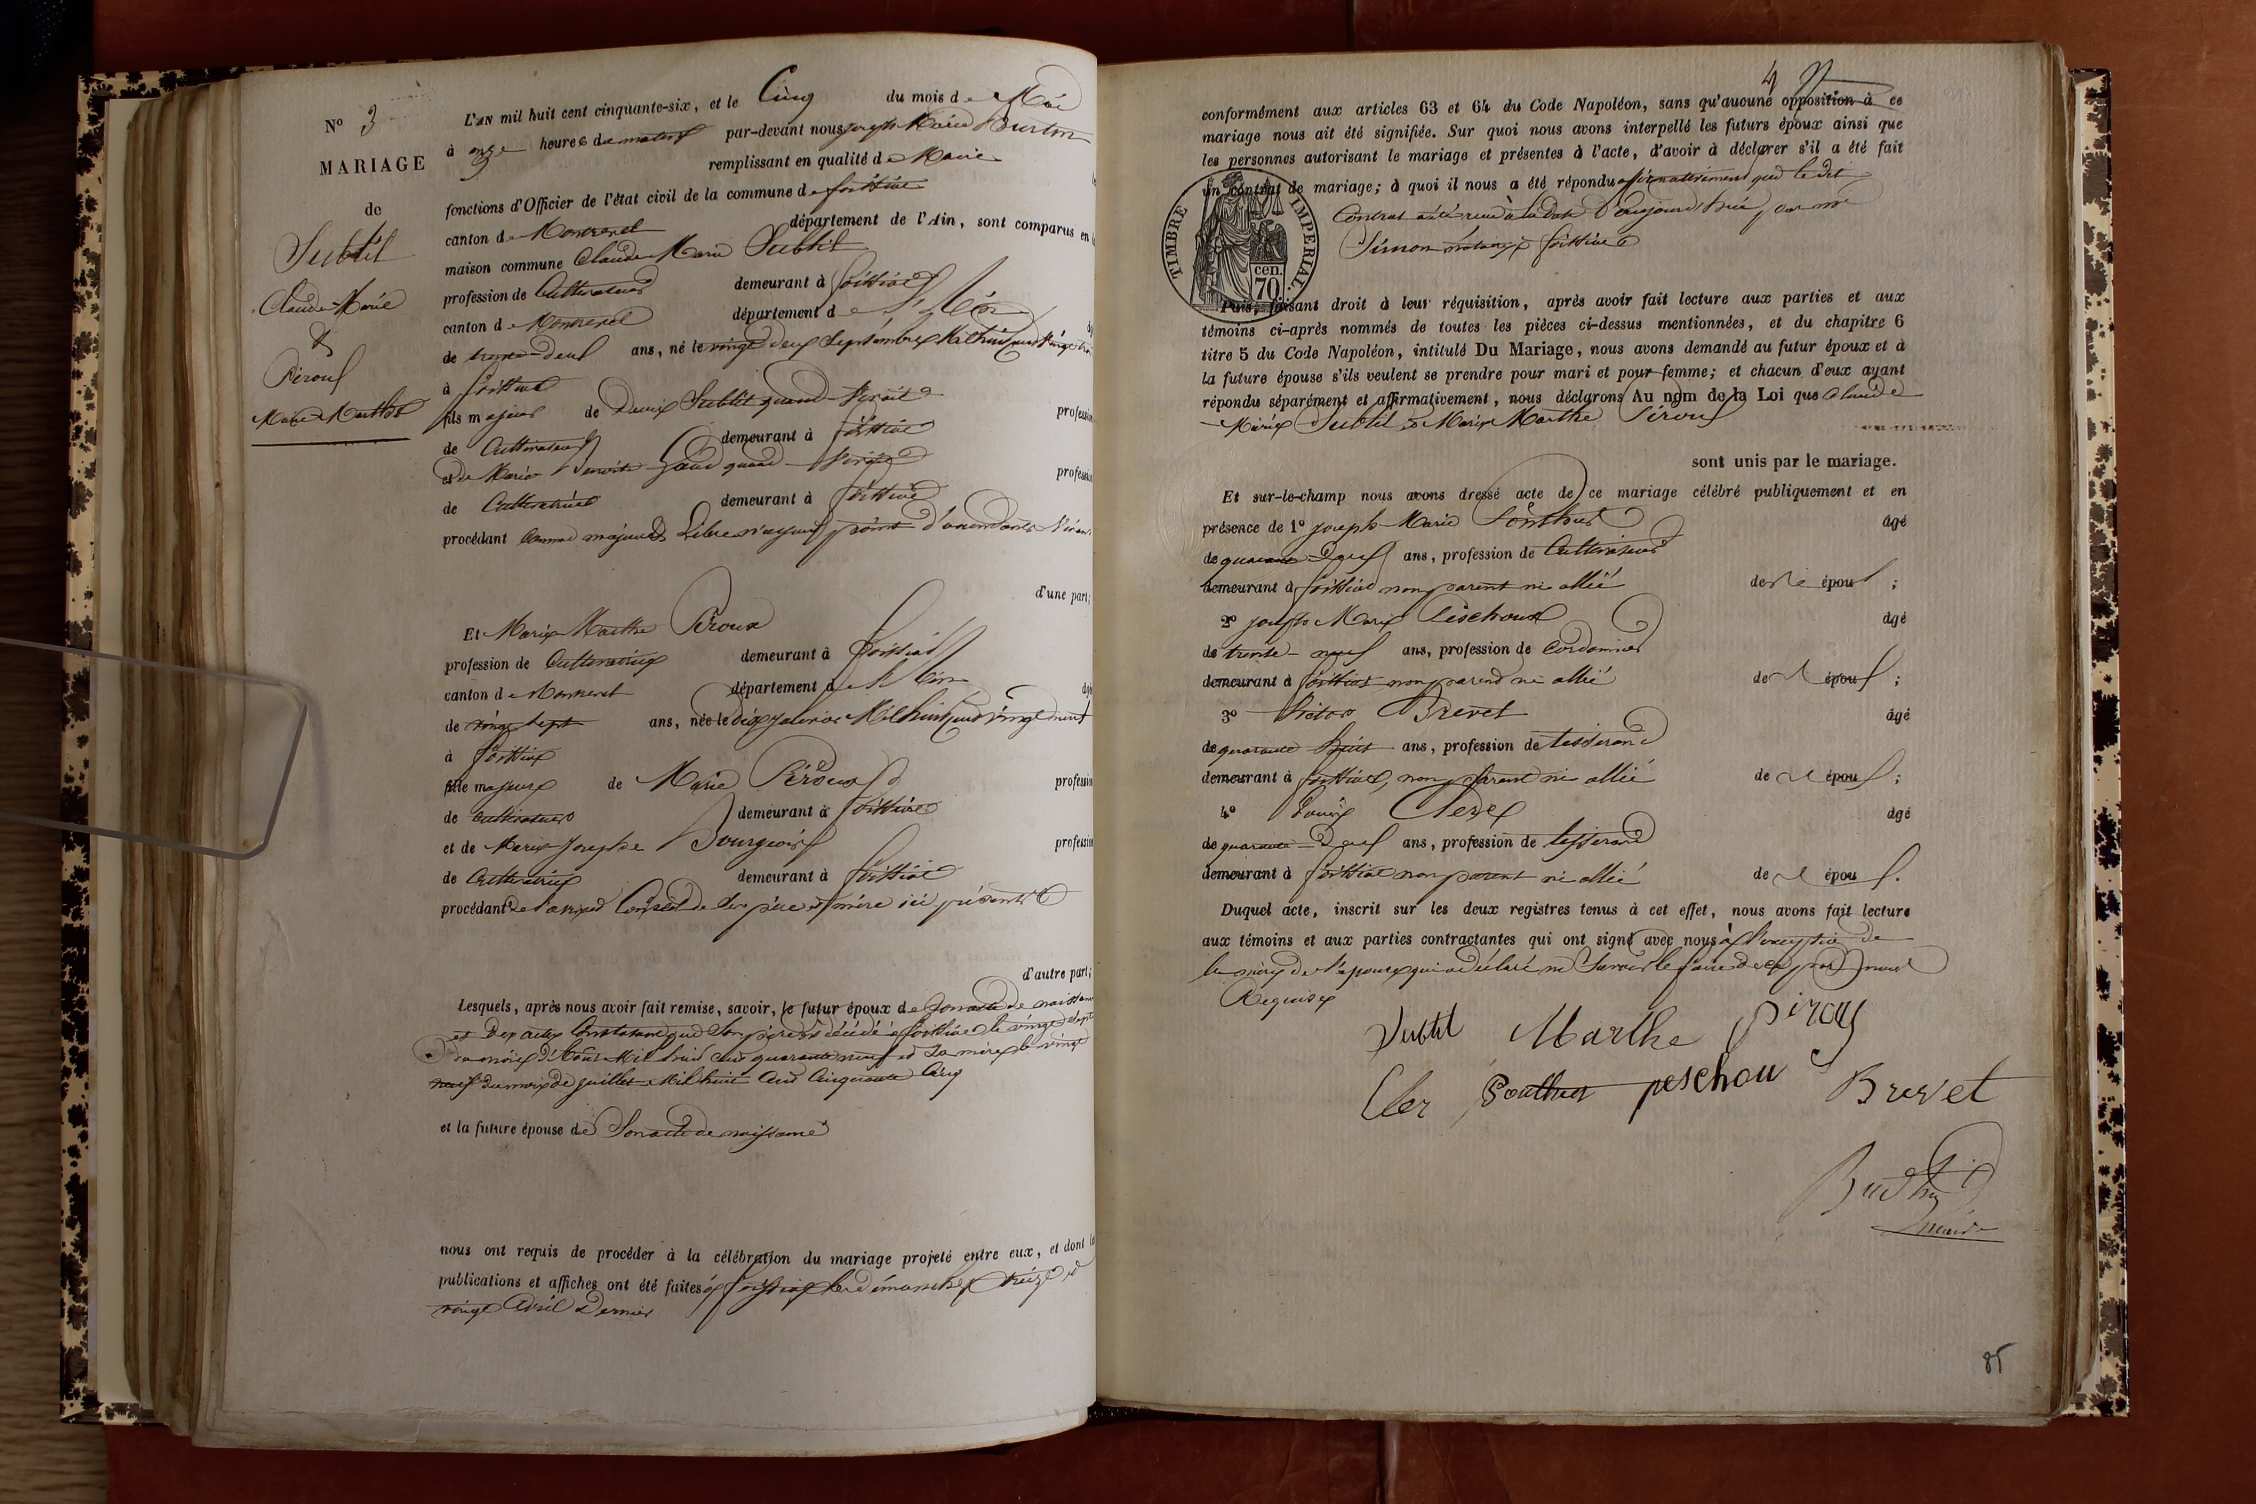 N° 3
MARIAGE
de
Subtil
Claude-Marie
&
Piroux
Marie-Marthe
L'AN mil huit cent cinquante-six, et le Cinq du mois de Mai
à onze heures du matin par-devant nous joseph Marie Burtin
remplissant en qualité de Maire
fonctions d'Officier de l'état civil de la commune de foissiat
canton de Montrevel département de l'Ain, sont comparus en la
maison commune Claude Marie Subtil
profession de Cultivateur demeurant à foissiat
canton de Montrevel département de l'Ain
de trente-deux ans, né le vingt deux Septembre Mil huit cent vingt trois
à foissiat
fils majeur de Denis Subtil quand vivait profession
de Cultivateur demeurant à foissiat
et de Marie quand vivait profession
de Cultivatrice demeurant à foissiat
procédant comme majeur & Libre n'ayant point d'ascendants
d'une part;
Et Marie Marthe Piroux
profession de Cultivatrice demeurant à foissiat
canton de Montrevel département de l'Ain âgée
de vingt sept ans, née le Mil huit cent vingt neuf
à foissiat
fille majeure de Marie Piroux profession
de Cultivateur demeurant à foissiat
et de Marie Josephe Bourgeois profession
de Cultivatrice demeurant à foissiat
procédant de l'avis et Conseil de ses père et mère ici présents
d'autre part;
Lesquels, après nous avoir fait remise, savoir, le futur époux de Son acte de naissance
et Des actes Constatant que Son père est décédé à foissiat le vingt sept
du mois d'Août Mil huit cent quarante neuf et Sa mère le vingt
neuf du mois de juillet Mil huit Cent Cinquante Cinq
et la future épouse de Son acte de naissance
nous ont requis de procéder à la célébration du mariage projeté entre eux, et dont les
publications et affiches ont été faites à foissiat les dimanches treize et
vingt Avril Dernier
4
conformément aux articles 63 et 64 du Code Napoléon, sans qu'aucune opposition à ce
mariage nous ait été signifiée. Sur quoi nous avons interpellé les futurs époux ainsi que
les personnes autorisant le mariage et présentes à l'acte, d'avoir à déclarer s'il a été fait
un contrat de mariage; à quoi il nous a été répondu affirmativement que le dit
Contrat a été reçu à la Date D'aujourd'hui par me
Simon notaire à foissiat
TIMBRE IMPERIAL.
cen.
70
Puis, faisant droit à leur réquisition, après avoir fait lecture aux parties et aux
témoins ci-après nommés de toutes les pièces ci-dessus mentionnées, et du chapitre 6
titre 5 du Code Napoléon, intitulé Du Mariage, nous avons demandé au futur époux et à
la future épouse s'ils veulent se prendre pour mari et pour femme; et chacun d'eux ayant
répondu séparément et affirmativement, nous déclarons Au nom de la Loi que Claude
Marie Subtil & Marie Marthe Piroux
sont unis par le mariage.
Et sur-le-champ nous avons dressé acte de ce mariage célébré publiquement et en
présence de 1° joseph Marie Ponthus âgé
de quarante Deux ans, profession de Cultivateur
demeurant à foissiat non parent ni allié des époux ;
2° joseph Marie Péschoux âgé
de trente-neuf ans, profession de Cordonnier
demeurant à foissiat non parent ni allié des époux ;
3° Victor Brevet âgé
de quarante huit ans, profession de tisserand
demeurant à foissiat, non parent ni allié des époux ;
4° Louis Clerc âgé
de quarante-Deux ans, profession de tisserand
demeurant à foissiat non parent ni allié des époux.
Duquel acte, inscrit sur les deux registres tenus à cet effet, nous avons fait lecture
aux témoins et aux parties contractantes qui ont signé avec nous à l'exception de
la mère de l'épouse qui a déclaré ne Savoir le faire de ce par nous
Requise
Subtil Marthe piroux
Cler Ponthus peschou Brevet
Burtin
maire
85